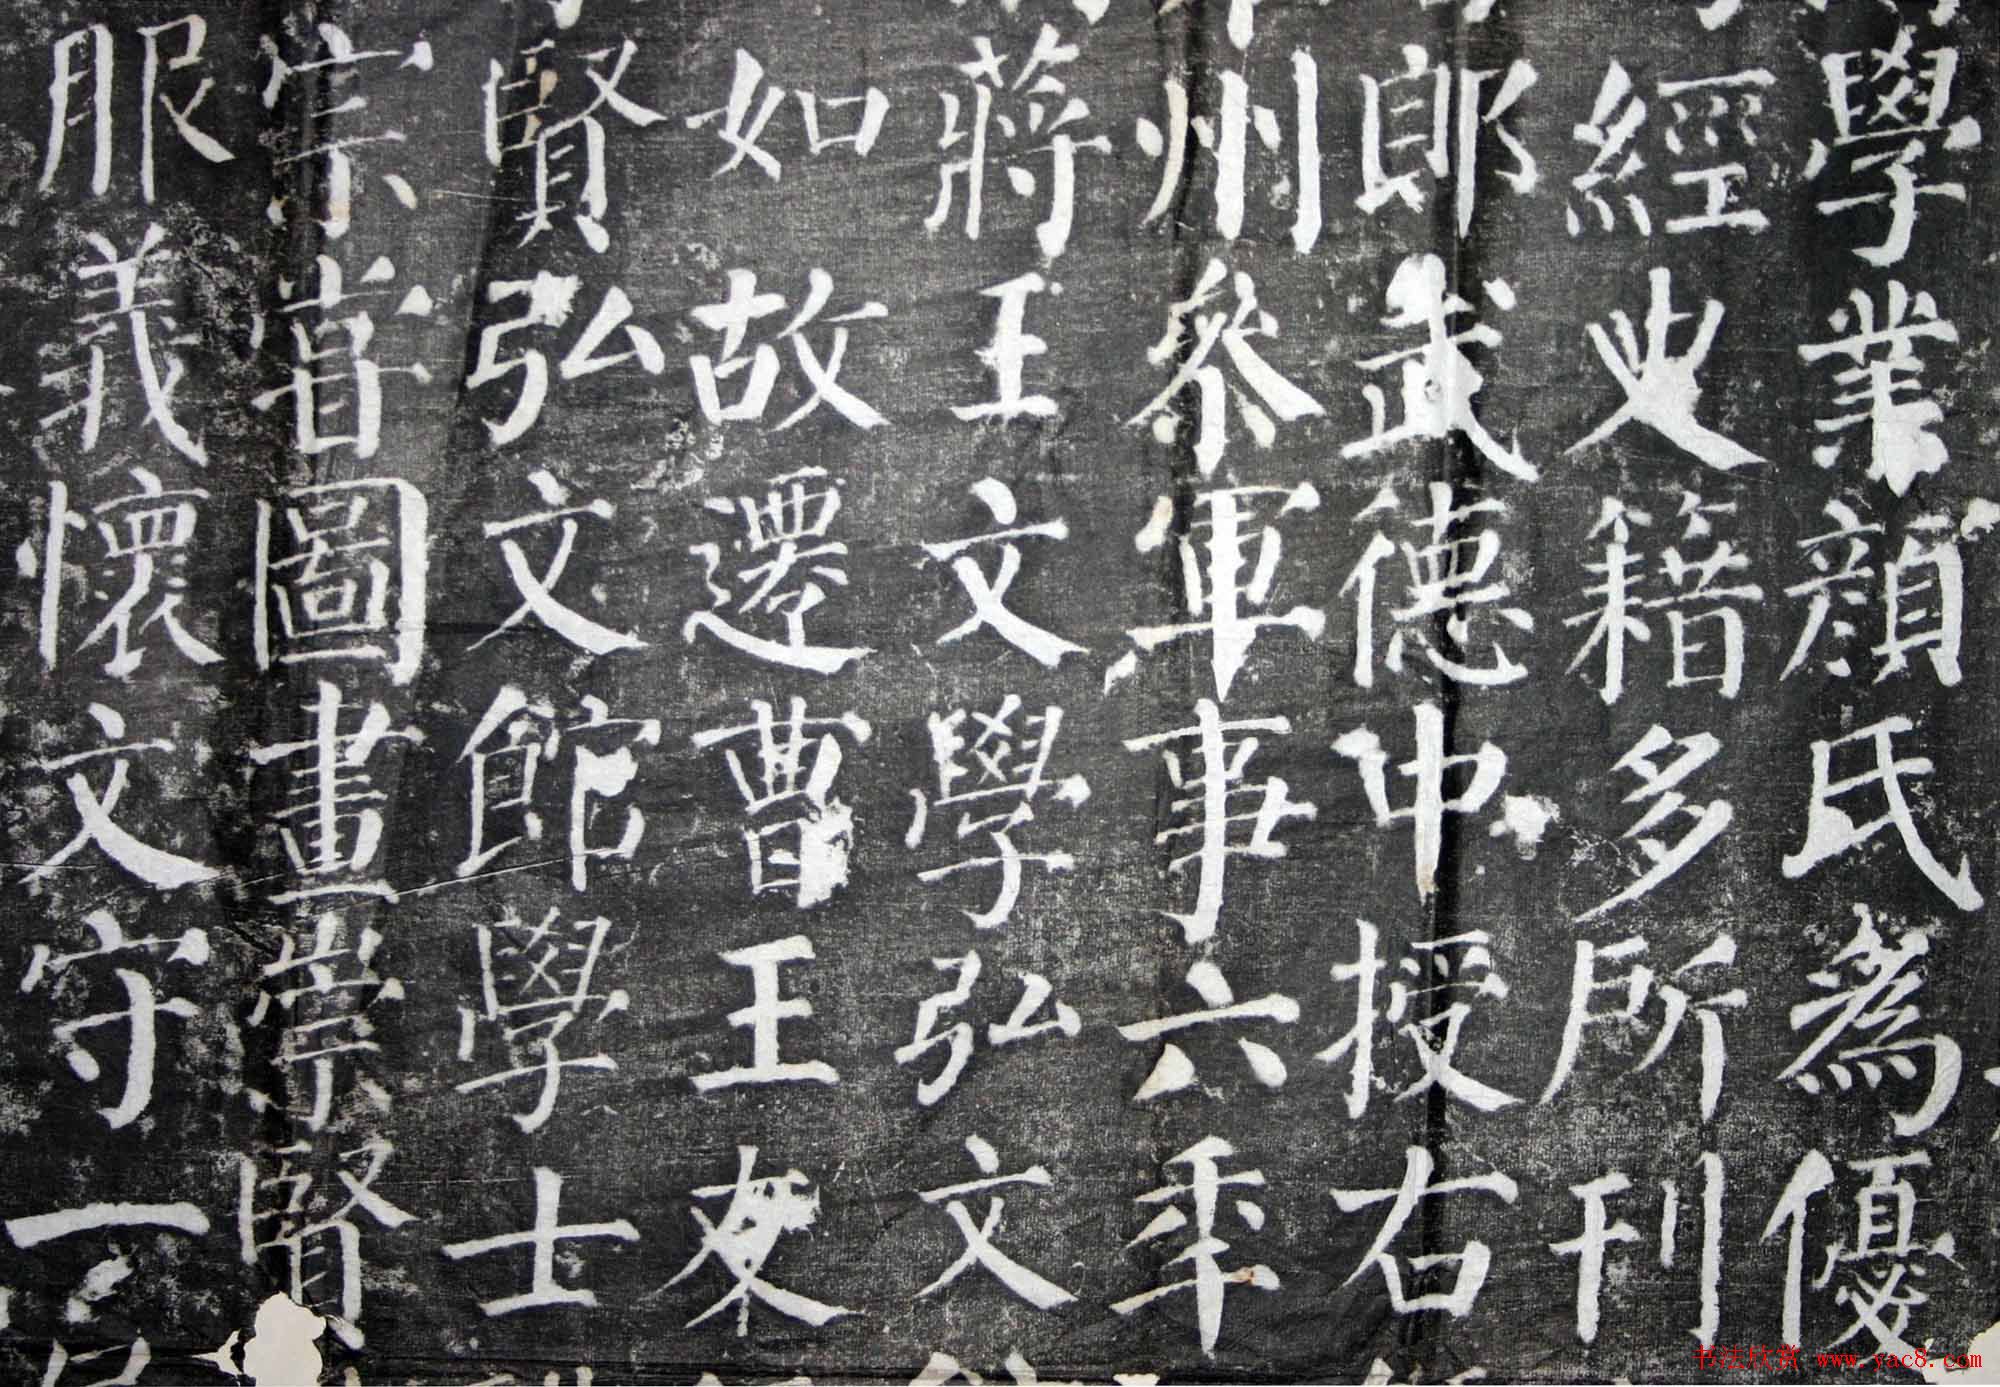 學業顏氏為優
經史籍多所刊
郎武德中授右
州參軍事六年
蔣王文學弘文
如故遷曹王友
賢弘文館學士
宗嘗圖畫崇賢
服義懷文守一
书法欣赏 www.yac8.com